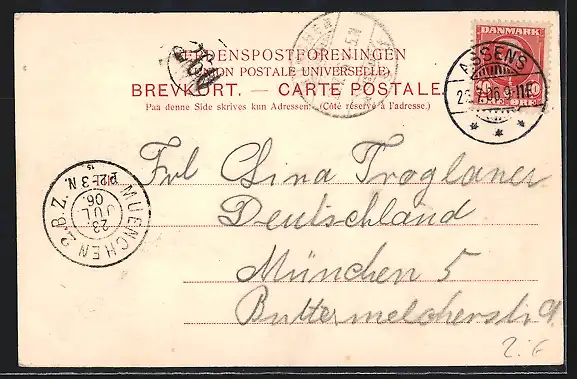 VERDENSPOSTFORENINGEN
(UNION POSTALE UNIVERSELLE)
BREVKORT. — CARTE POSTALE
Paa denne Side skrives kun Adressen. (Côté réservé à l'adresse.)
DANMARK
10 ØRE 10
ASSENS
MUENCHEN 2 B.Z.
23
JUL
06.
Frl Lina Troglauer
Deutschland
München 5
Buttermelcherstr 9.